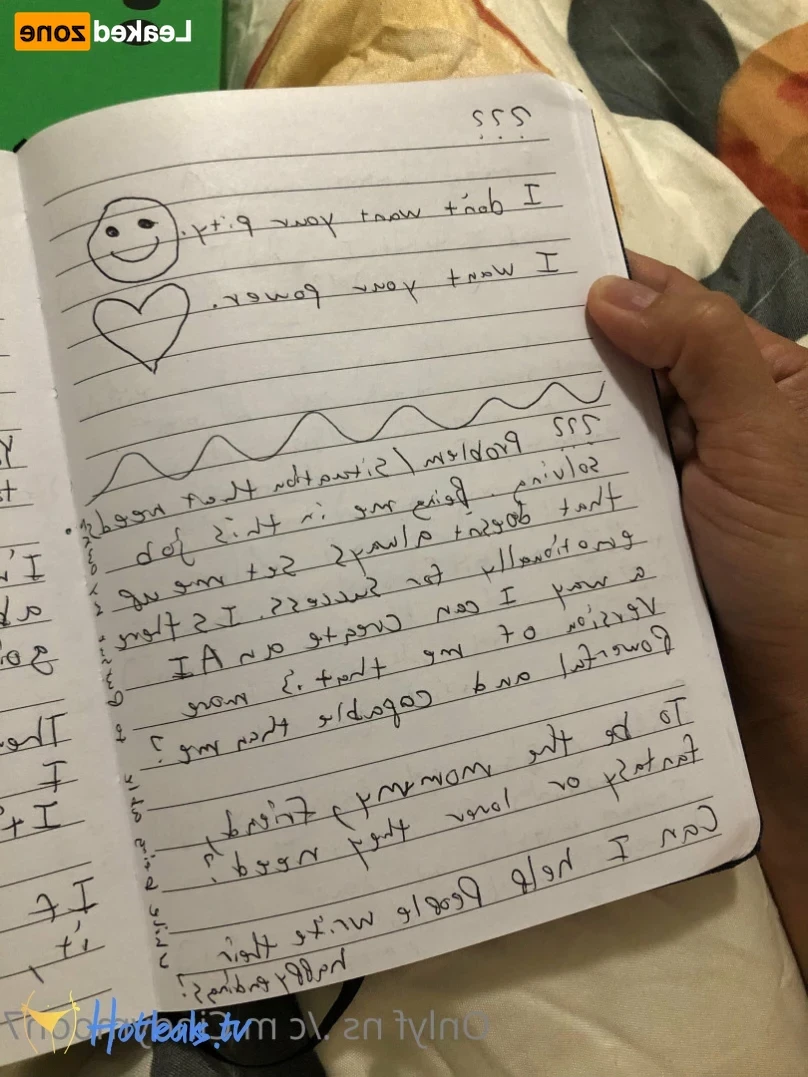 Leaked zone
???
I don't want your pity.
I want your power.
??? Problem/situation that needs
solving. Being me in this job
that doesn't always set me up
emotionally for success. Is there
a way I can create an AI
version of me that is more
Powerful and capable then me?
To be the mommy, friend,
fantasy or lover they need?
Can I help People write their
happy endings?
while being able to
Hotleaks.tv